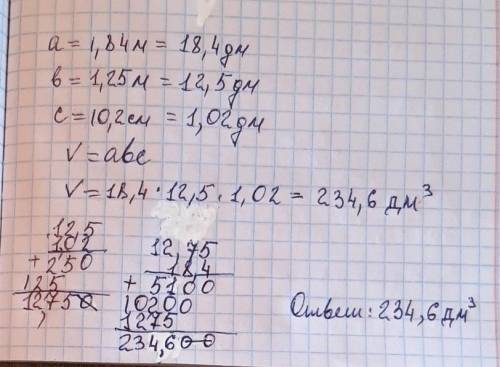 a = 1,84м = 18,4дм
в = 1,25м = 12,5дм
с = 10,2см = 1,02дм
V = abc
V = 18,4 · 12,5 · 1,02 = 234,6 дм³
12,5
102
+ 250
125
12750
,
12,75
18,4
+ 5100
10200
1275
234,600
Ответ: 234,6 дм³